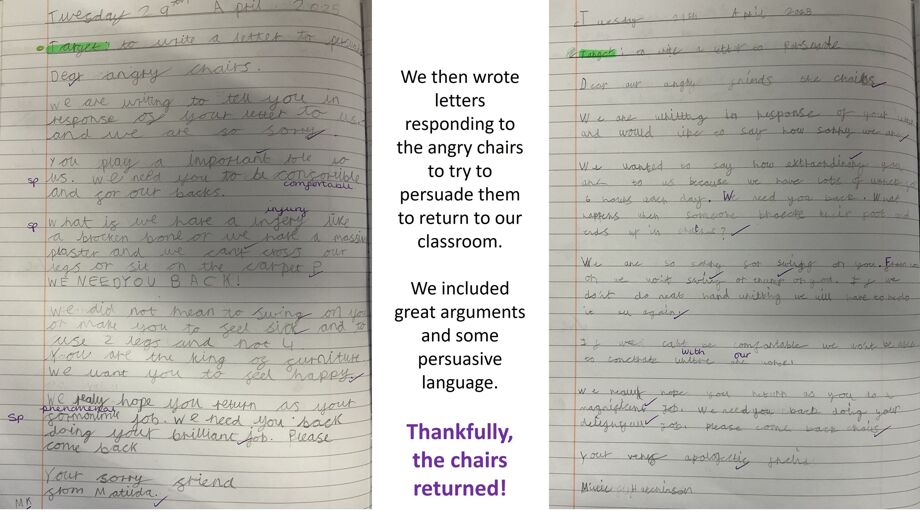 Tuesday 29th April 2025
Target: to write a letter to persuade
Dear angry chairs.
We are writing to tell you in
response of your letter to us
and we are so sorry.
You play a important role to
sp us. We need you to be consorible
comfortable
and for our backs.
injury
sp What is we have a infery like
a brocken bone or we have a massive
plaster and we can't cross our
legs or sit on the carpet?
WE NEED YOU BACK!
We did not mean to swing on you
or make you to feel sick and to
use 2 legs and not 4.
You are the king of furniture
We want you to feel happy.
We really hope you return as your
phenomenal
Sp job. We need you back
doing your brilliant job. Please
come back
Your sorry friend
from Matilda.
MK
We then wrote
letters
responding to
the angry chairs
to try to
persuade them
to return to our
classroom.
We included
great arguments
and some
persuasive
language.
Thankfully,
the chairs
returned!
Tuesday April
Target: to write a letter to persuade
Dear our angry friends the chairs
We are writting in response of your letter
and would like to say how sorry we are
We wanted to say how extraordinary you
are to us because we have lots of
6 hours each day. We need you back. What
happens when someone their foot and
ends up in
We are so sorry for swing on you. From
on we won't swing or on you. If we
don't do neat hand writting we will have to redo
it all again
If we can't be comfortable we won't be able
with our
to our
We really hope you return as you do a
magnificent job. We need you back doing your
delightfull job. Please come back chairs
Your very apologetic
Hutchinson